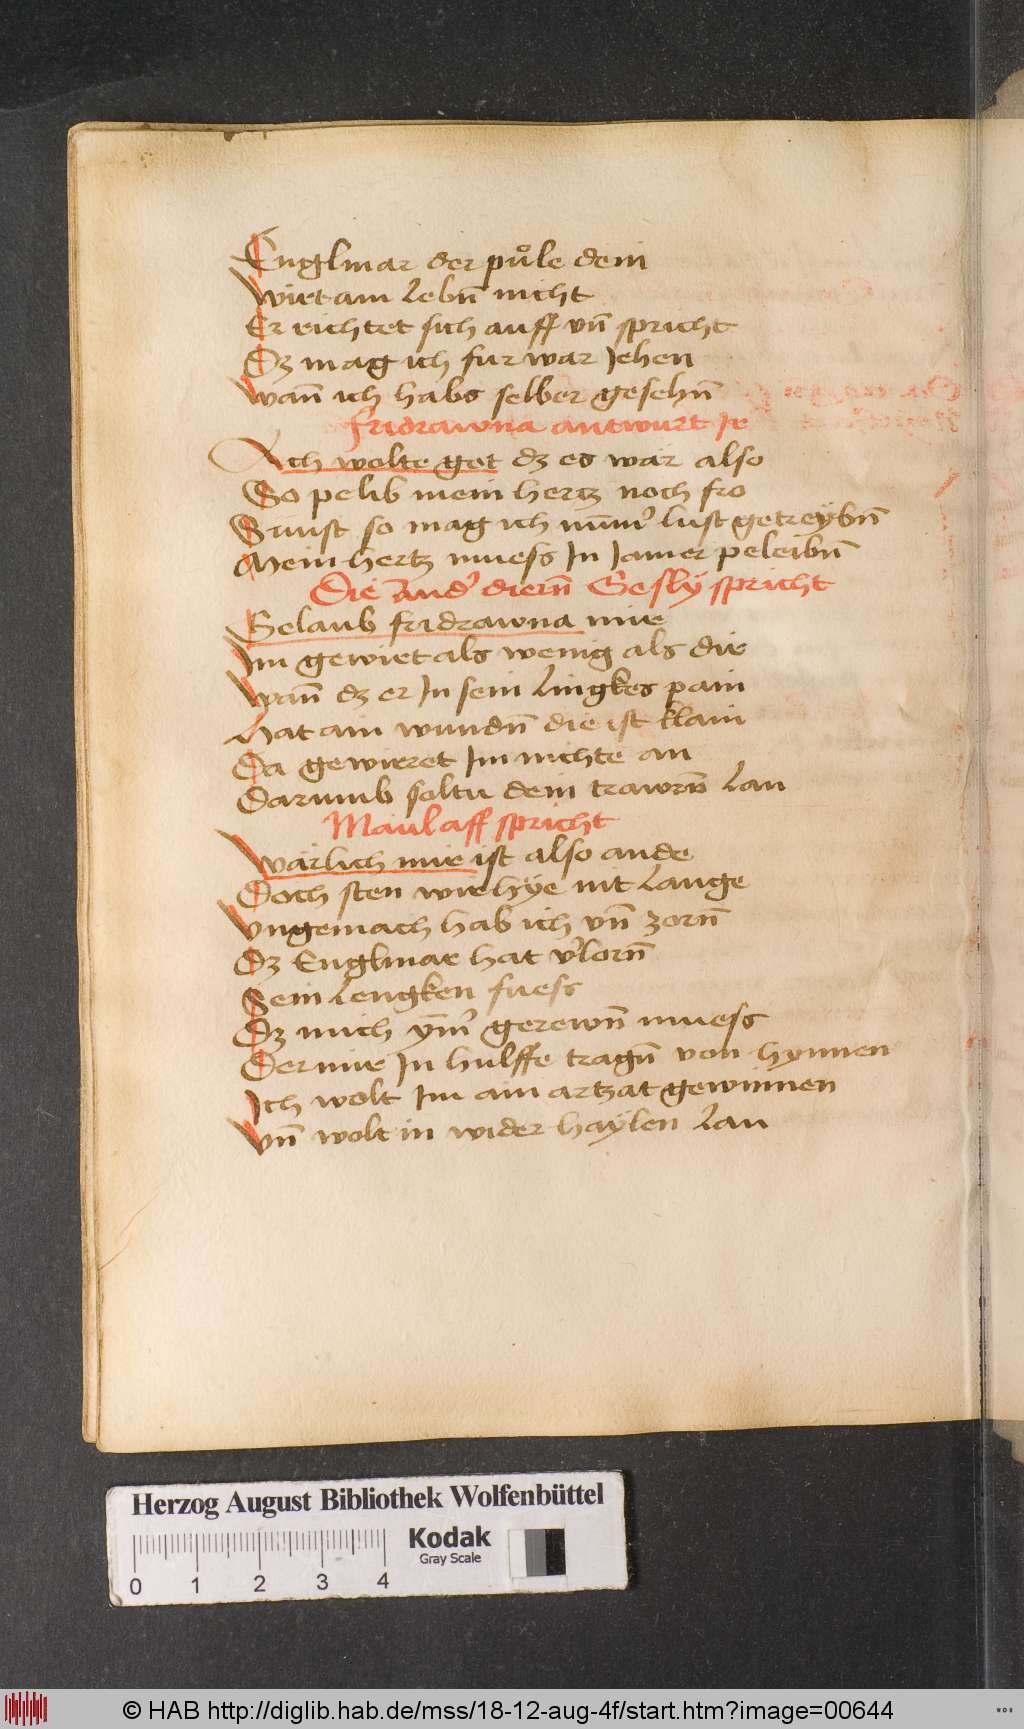 Englmar der půle dein
Wirt am lebn̄ nicht
Er richtet sich auff vn̄ spricht
Dz mag ich fur war Jehen
Wan̄ ich habs selber gesehn̄
fridrawna antwurt Jr
Ach wolte got dz es wär also
So pelib mein hertz noch fro
Sunst so mag ich num̄er lust getreybn̄
Mein hertz muess In Jamer peleibn̄
Die and' diern̄ Gesly spricht
Gelaub fridrawna mir
Im gewirt als wenig als dir
Wan̄ dz er In sein lingkes pain
Hat ain wundn̄ die ist klain
Da gewirret Im nichte an
Darumb soltu dein trawrn̄ lan
Maulaff spricht
Wärlich mir ist also ande
Doch sten wir hÿe nit lange
Vngemach hab ich vn̄ zorn̄
Dz Englmar hat v'lorn̄
Sein lengken fuess
Dz mich ym̄' gerewn̄ muess
Der mir In hulffe tragn̄ von hynnen
Ich wolt Im ain artzat gewinnen
Vn̄ wolt in wider haÿlen lan
Herzog August Bibliothek Wolfenbüttel
Kodak
Gray Scale
0 1 2 3 4
© HAB http://diglib.hab.de/mss/18-12-aug-4f/start.htm?image=00644